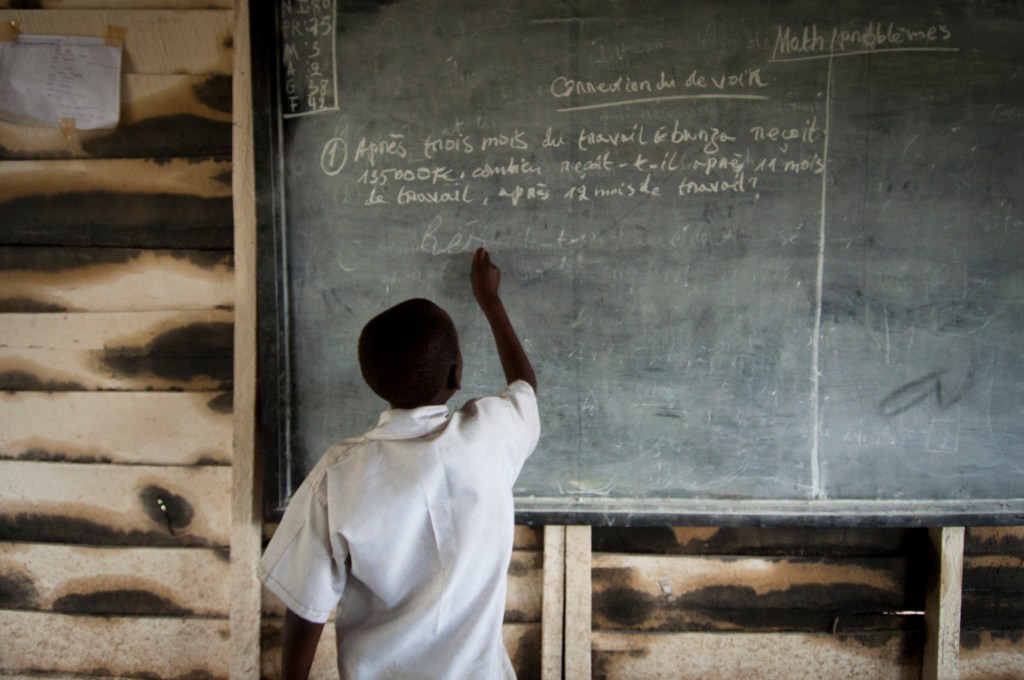 N.I:80
PR:75
M 5
A 2
G 38
F 42
Math/problèmes
Correction du devoir
① Après trois mois du travail Ebunza reçoit
135000FC. combien reçoit-t-il après 11 mois
de travail, après 12 mois de travail?